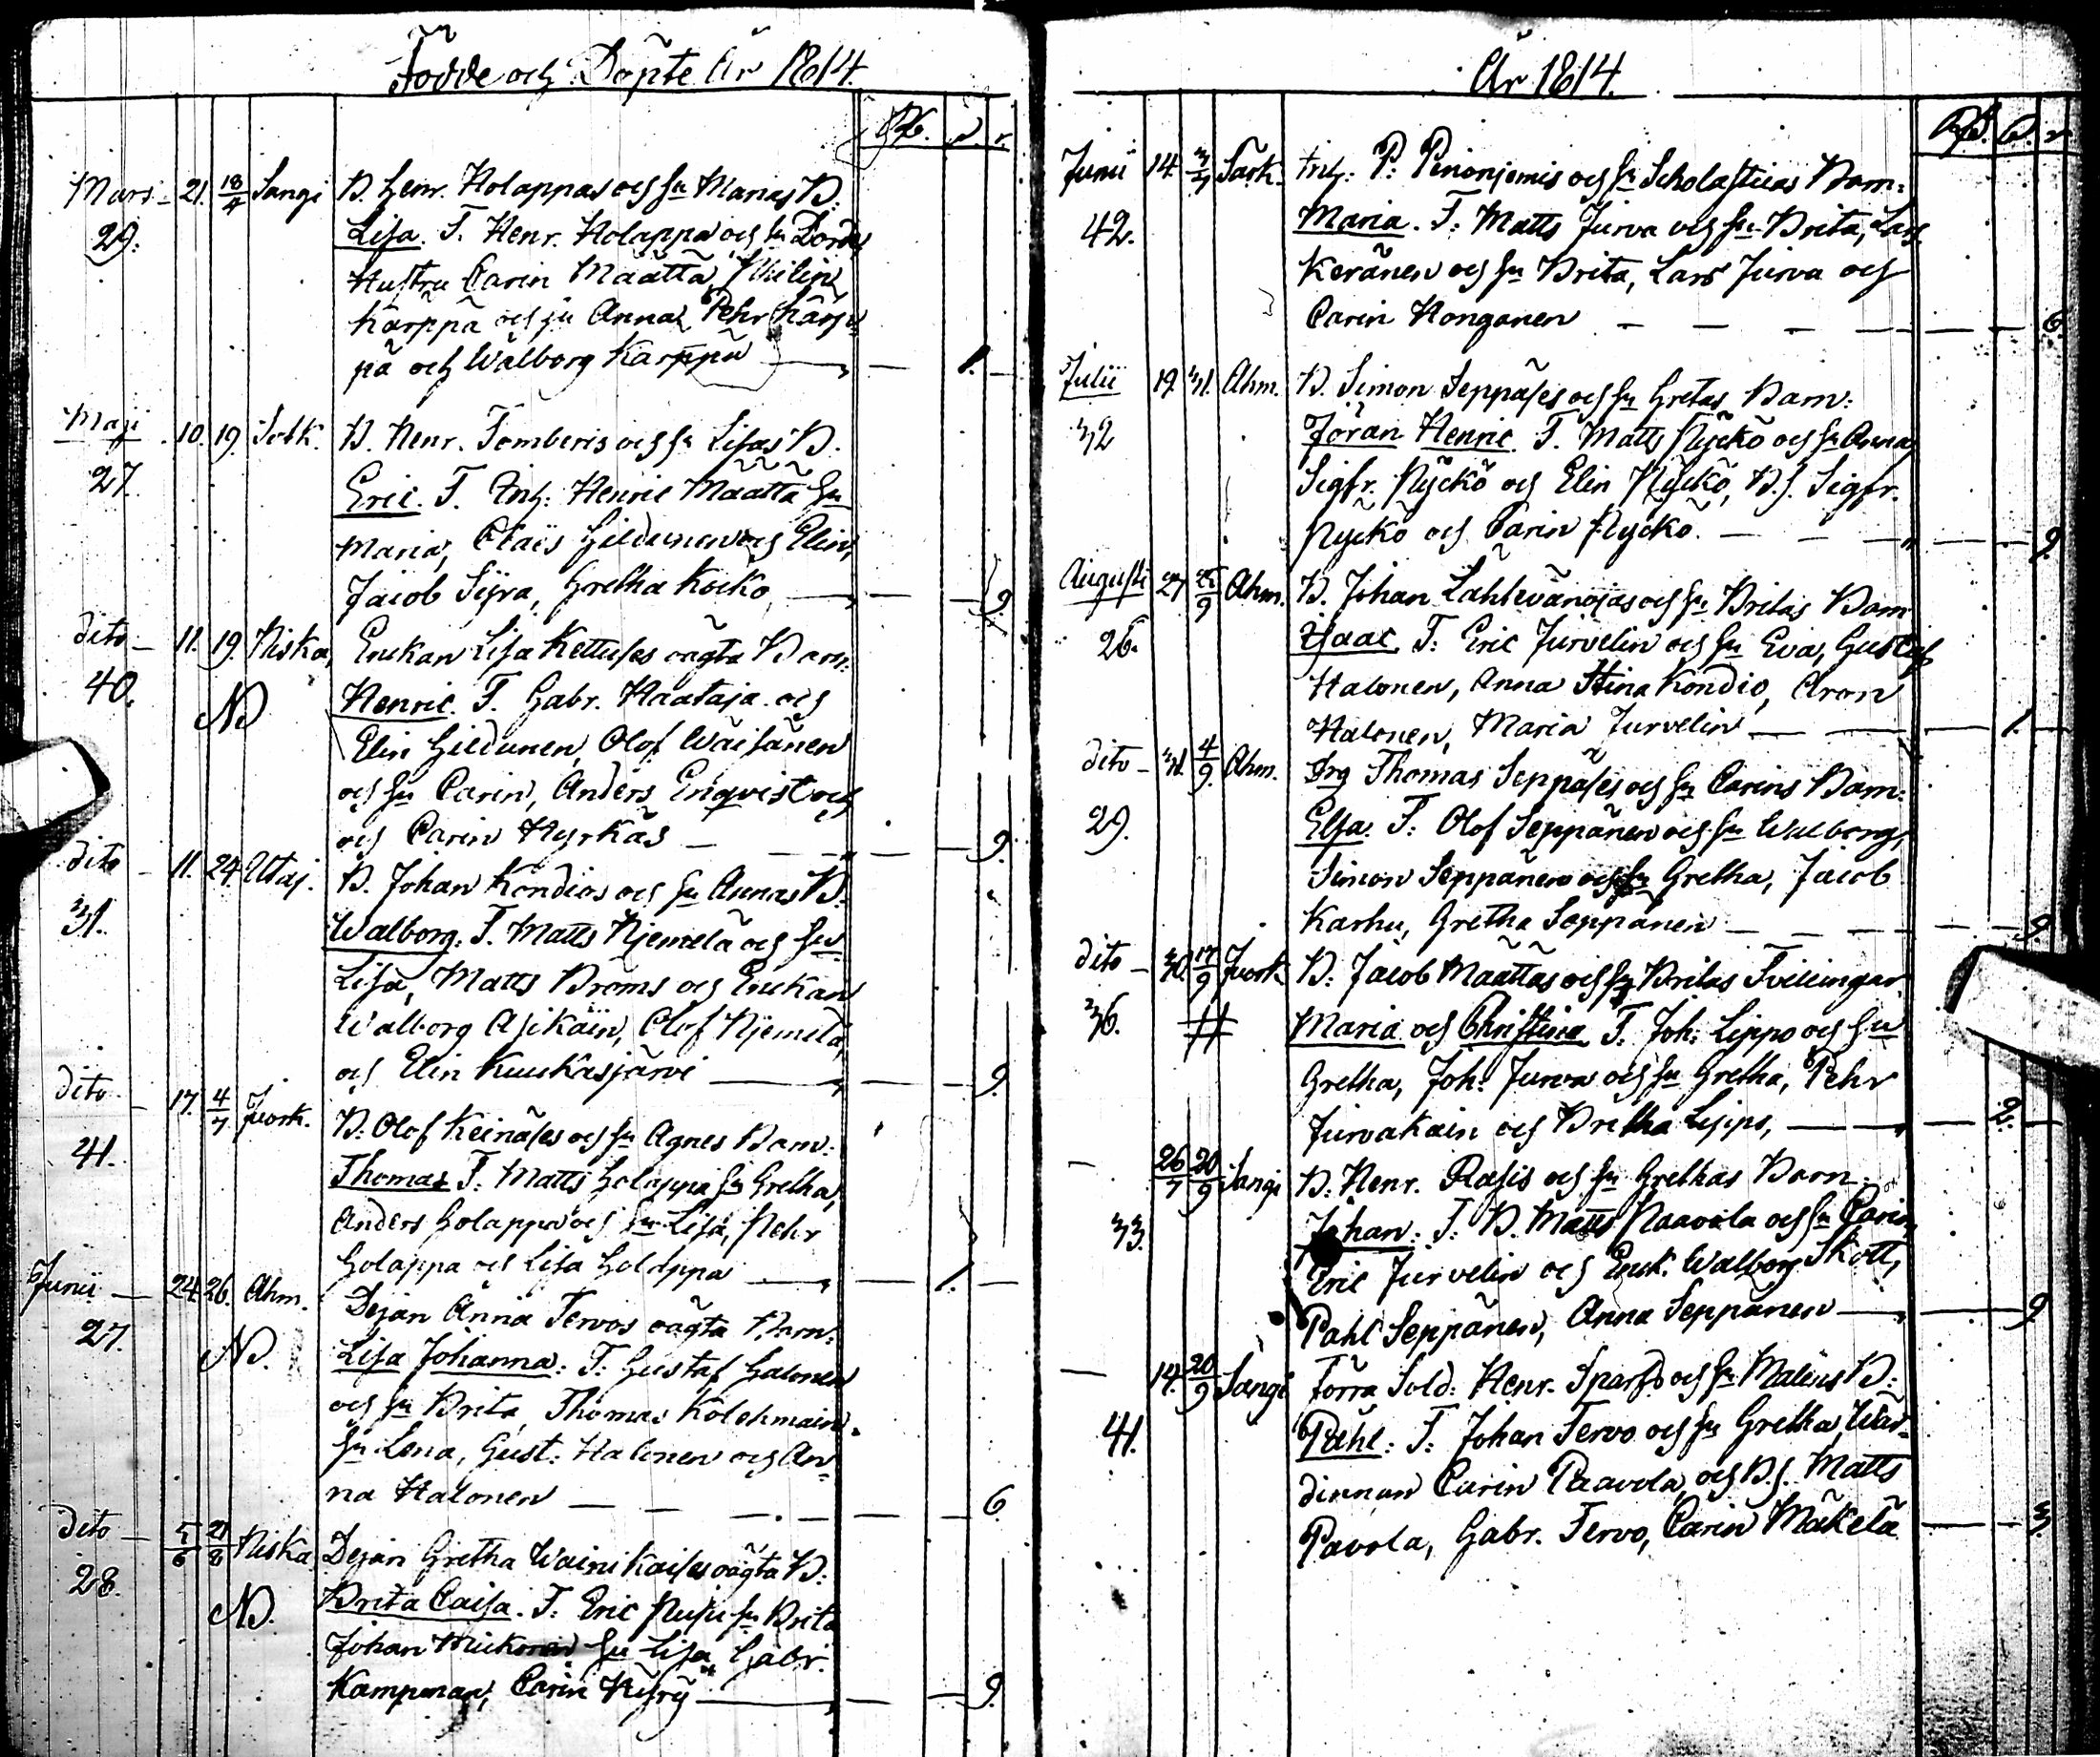 Födde och Döpte År 1814.
Mars 21. 18/4 Sangi B. Henr. Holappas och hu Marias B.
29. Lisa. F. Henr. Holappa och hu Dordi,
Hustru Carin Määttä, Philip
Kärppä och hu Anna, Pehr Kärp-
pä och Walborg Kärppä 1.
Maji 10. 19. Sotk. B. Henr. Tomberis och hu Lisas B.
27. Eric. F. Inh: Henric Määttä hu
Maria, Claës Hildunen och Elin,
Jacob Sijra, Gretha Kocko 9.
dito 11. 19. Niska, Enckan Lisa Kettuses oägta Barn:
40. NB Henric. F. Gabr. Haataja och
Elin Hildunen, Olof Wäisänen
och hu Carin, Anders Enqvist och
och Carin Hyrkäs 9.
dito 11. 24. Utaj. B. Johan Kondios och hu Annas B.
31. Walborg: F. Matts Njemelä och hu
Lisa, Matts Broms och Enckan
Walborg Asikain, Olof Njemelä,
och Elin Kuukasjärvi 9.
dito 17. 4/7 Juork. B: Olof Keinäses och hu Agnes Barn:
41. Thomas F: Matts Holappa hu Gretha,
Anders Holappa och hu Lisa, Pehr
Holappa och Lisa Holappa 1.
Junii 24 26. Ahm. Pejan Anna Tervos oägta Barn:
27. NB. Lisa Johanna: F: Gustaf Halonen
och hu Brita, Thomas Kolehmain.
hu Lena, Gust: Halonen och An-
na Halonen 6
Dito 5/6 21/8 Niska Pejan Gretha Wainikaises oägta B:
28. NB. Brita Caisa. F: Eric hu Brita
Johan hu Lisa, Gabr.
Kampman, Carin 9.
År 1814.
Junii 14. 3/7 Särk. Inh: P: Pinonjemis och hu Scholasticas Barn:
42. Maria. F: Matts Jurva och hu Brita, Lars
Keränen och hu Brita, Lars Jurva och
Carin Honganen 6.
Julii 19. 31. Ahm. B. Simon Seppäses och hu Gretas Barn:
32 Jöran Henric. F. Matts Nyckö och hu Anna,
Sigfr. Nyckö och Elin Nyckö, B.S. Sigfr.
Nyckö och Carin Nyckö. 9.
Augusti 27 Ahm. B. Johan Lahtevänojas och hu Britas Barn
26. Isaac. F: Eric Jurvelin och hu Eva, Gustaf
Halonen, Anna Stina Kondio, Aron
Halonen, Maria Jurvelin 1.
dito 31. 4/9. Ahm. Thomas Seppäses och hu Carins Barn:
29. Elsa. F: Olof Seppänen och hu Walborg,
Simon Seppänen och hu Gretha, Jacob
Karhu, Gretha Seppänen 9.
dito 30. 17/9 Juork B: Jacob Määttäs och hu Britas Tvillingar
36. # Maria och Christina F. Joh: Lippo och hu
Gretha, Joh: Jurva och hu Gretha, Pehr
Jurvakain och Britha Lippo, 2.
26/7 20/9 Sangi B: Henr. Rasis och hu Grethas Barn
33. Johan: F: B. Matts Paavola och hu Carin,
Eric Jurvelin och Enck. Walborg Skott,
Pahl Seppänen, Anna Seppänen 9
14. 20/9 Sangi Förra Sold: Henr. och hu Malens B:
41. Påhl: F: Johan Tervo och hu Gretha, Wär-
dinnan Carin Paavola, och B.S. Matts
Pavola, Gabr. Tervo, Carin Mäkelä 3